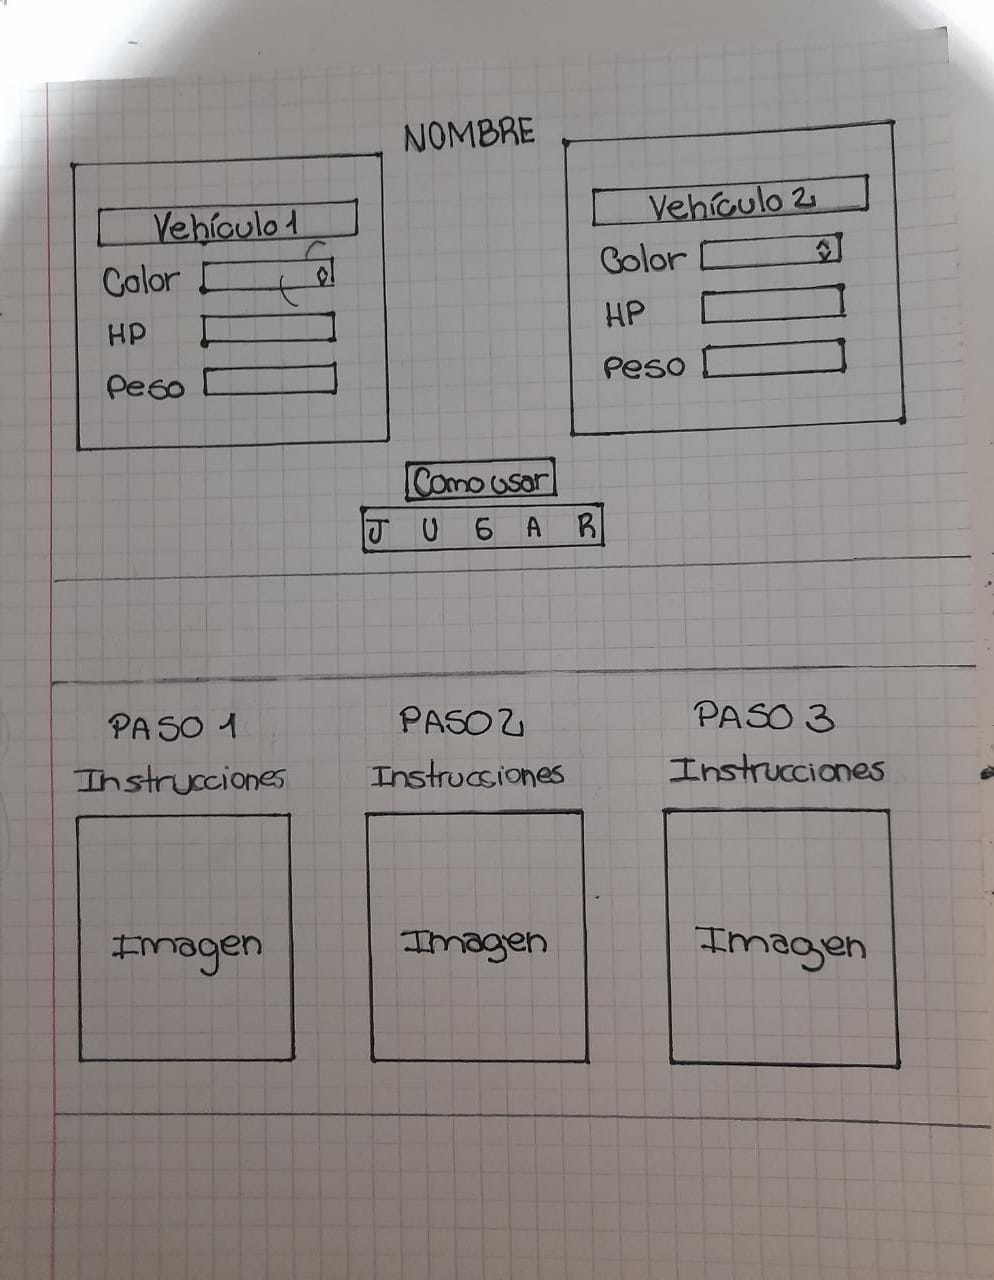 NOMBRE
Vehículo 1
Color
HP
Peso
Vehículo 2
Color
HP
Peso
Como usar
J U G A R
PASO 1
Instrucciones
Imagen
PASO 2
Instrucciones
Imagen
PASO 3
Instrucciones
Imagen